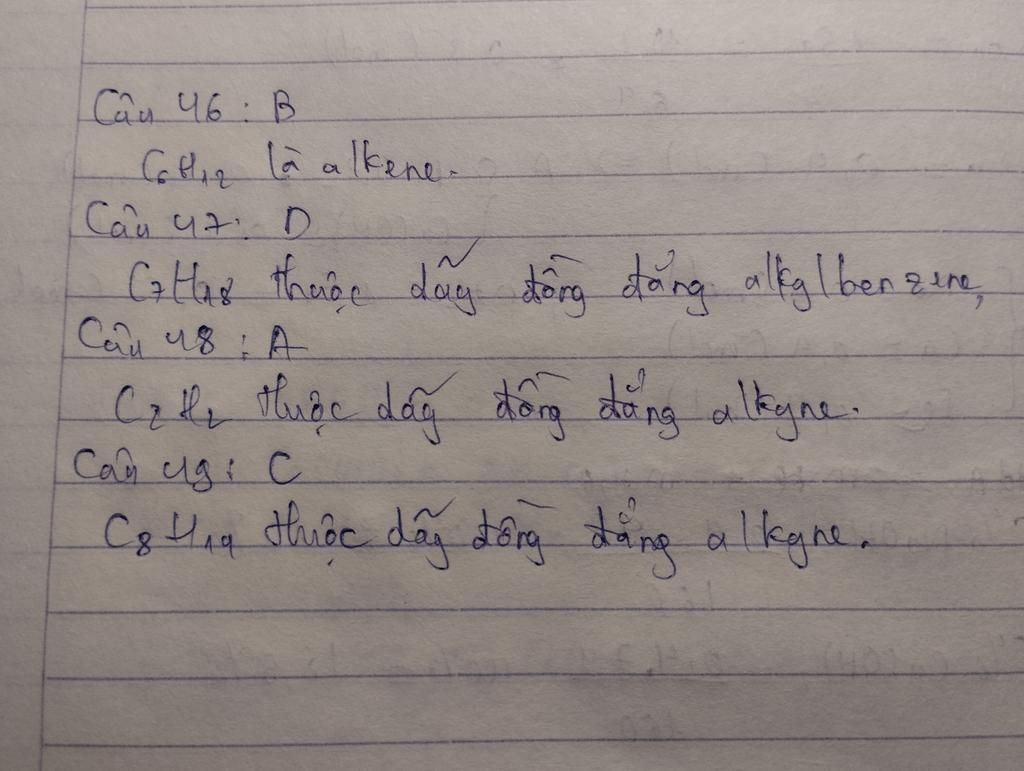 Câu 46 : B
C₆H₁₂ là alkene.
Câu 47 : D
C₇H₁₈ thuộc dãy đồng đẳng alkylbenzene,
Câu 48 : A
C₂H₂ thuộc dãy đồng đẳng alkyne.
Câu 49 : C
C₈H₁₄ thuộc dãy đồng đẳng alkyne.